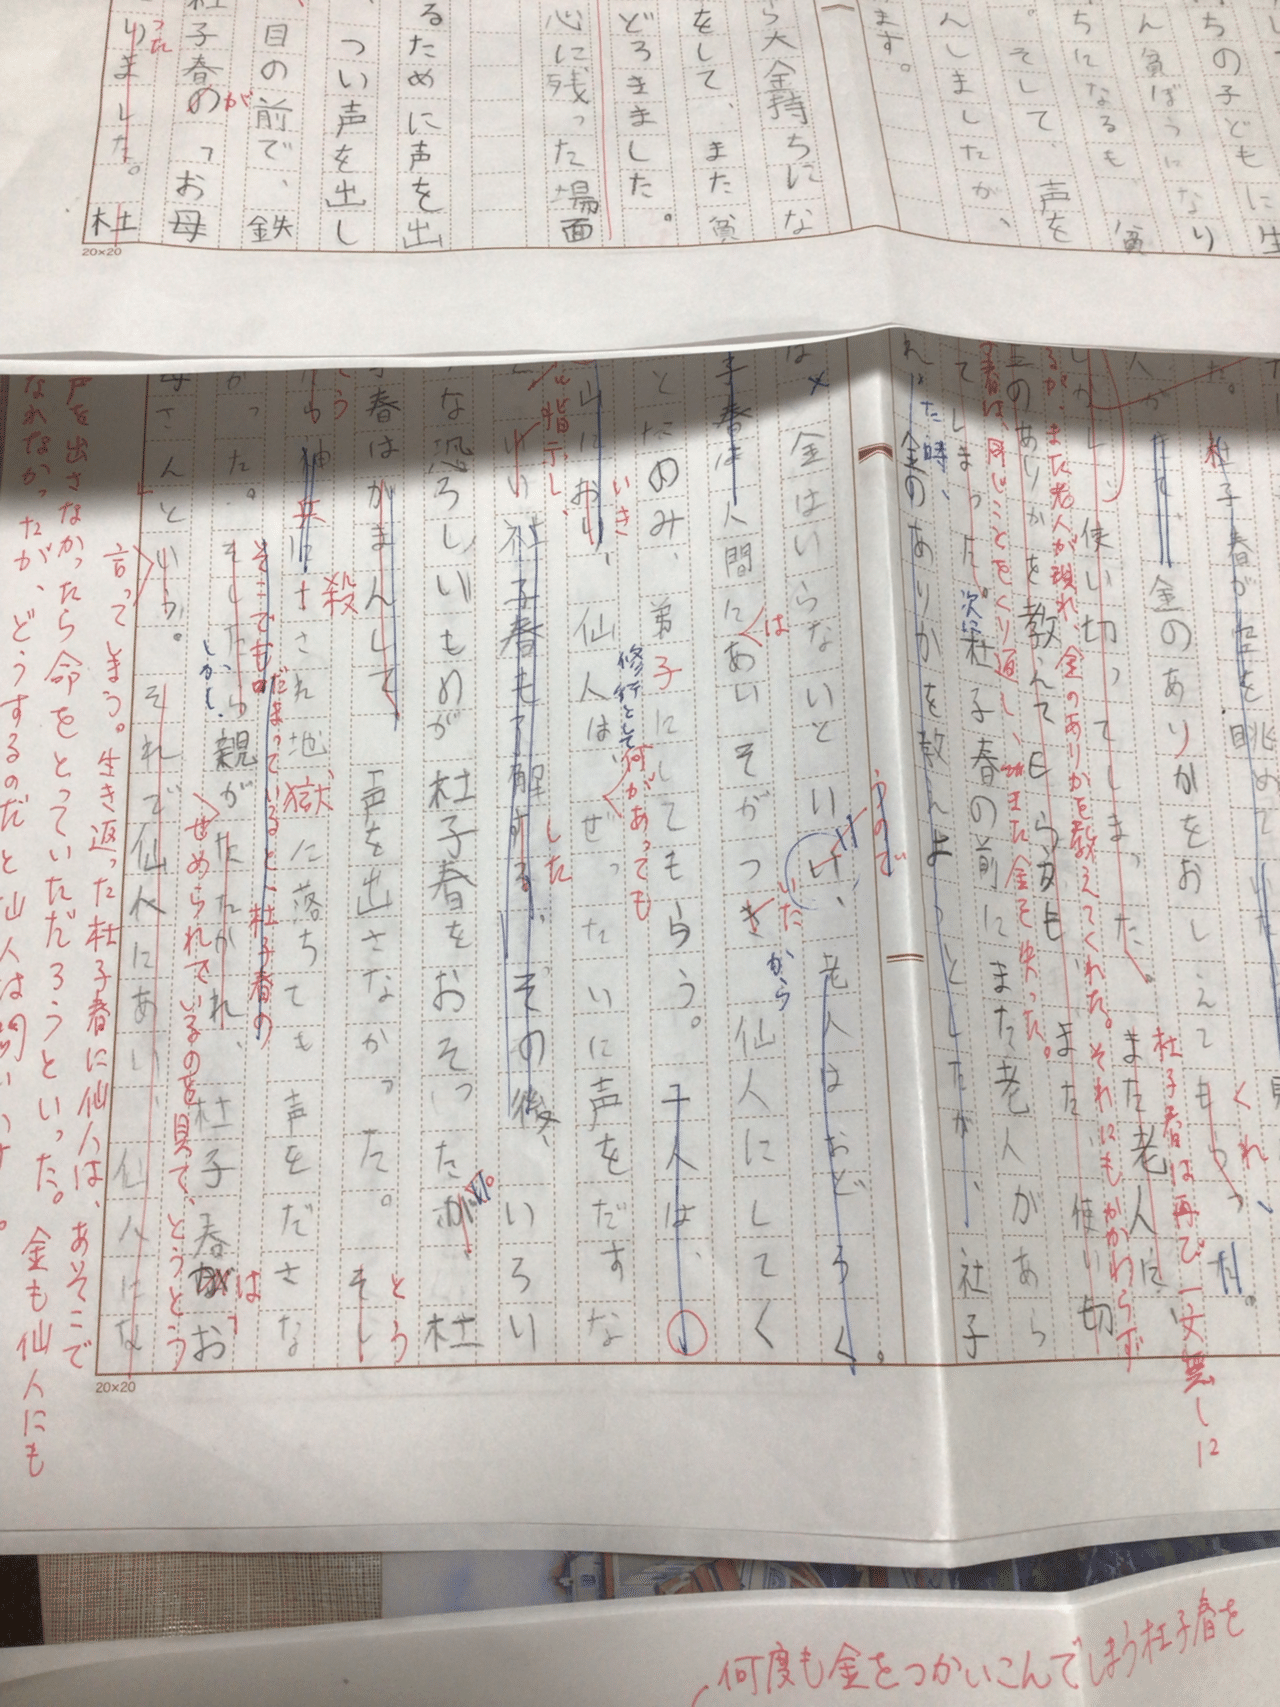 生
ちの子どもに
ん貧ぼうになり
ちになるも、貧
。そして、声を
んしましたが、
ます。
ら大金持ちにな
をして、また貧
どろきました。
心に残った場面
るために声を出
つい声を出し
目の前で、鉄
杜子春の「お母
が
りました。杜
った
20×20
た。杜子春が空を眺めていた
人が
です。金のありかをおしえてもらった。
くれ、
しかし使い切ってしまった。また老人に、
杜子春は再び一文無しに
るが、また老人が現れ、金のありかを教えてくれた。それにもかかわらず
金のありかを教えてもらうも、また、使い切
春は、同じことをくり返し、また金を失った。
ってしまった。杜子春の前にまた老人があら
次に
れた時、金のありかを教えようとしたが、杜子
うので
は、金はいらないといい、老人はおどろく。
子春は人間にあいそがつきいたから仙人にしてく
は
とたのみ、弟子にしてもらう。千人は、
山におり、仙人は、ぜったいに声をだすな
いき
修行として何があっても
と指示し、
いい杜子春も了解する。その後、いろい
した
な恐ろしいものが杜子春をおそったが、杜
子春はがまんして、声を出さなかった。そし
とう
神兵にさされ地獄に落ちても声をださな
殺
そこでもだまっていると、杜子春の
かった。そしたら親がたたかれ、杜子春がお
しかし、
は
せめられているのを見て、とうとう
母さんという。それで仙人にあい、仙人にな
言ってしまう。生き返った杜子春に仙人は、あそこで
声を出さなかったら命をとっていただろうといった。金も仙人にも
なれなかったが、どうするのだと仙人は問いか
20×20
何度も金をつかいこんでしまう杜子春を